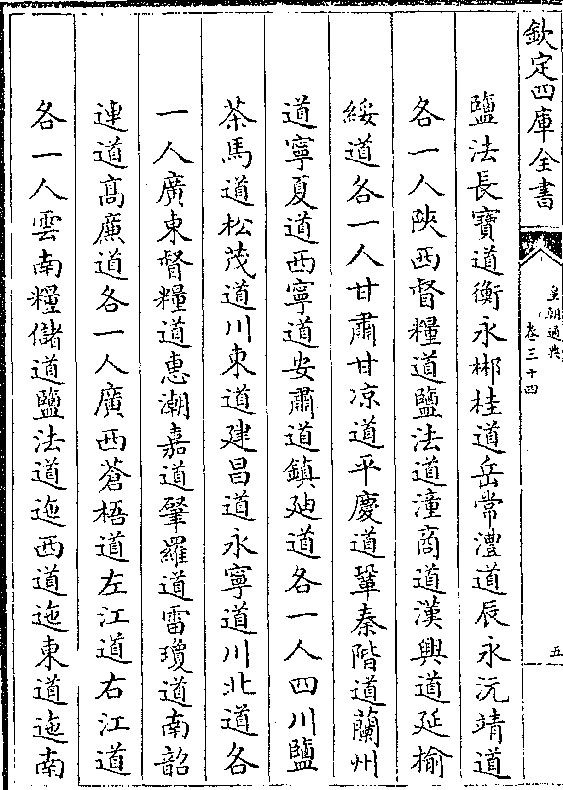 欽定四庫全書
皇朝通典
卷三十四
五
鹽法長寶道衡永郴桂道岳常澧道辰永沅靖道
各一人陜西督糧道鹽法道潼商道漢興道延榆
綏道各一人甘肅甘凉道平慶道鞏秦階道蘭州
道寧夏道西寧道安肅道鎮廸道各一人四川鹽
茶馬道松茂道川東道建昌道永寧道川北道各
一人廣東督糧道惠潮嘉道肇羅道雷瓊道南韶
連道髙廉道各一人廣西蒼梧道左江道右江道
各一人雲南糧儲道鹽法道迤西道迤東道迤南